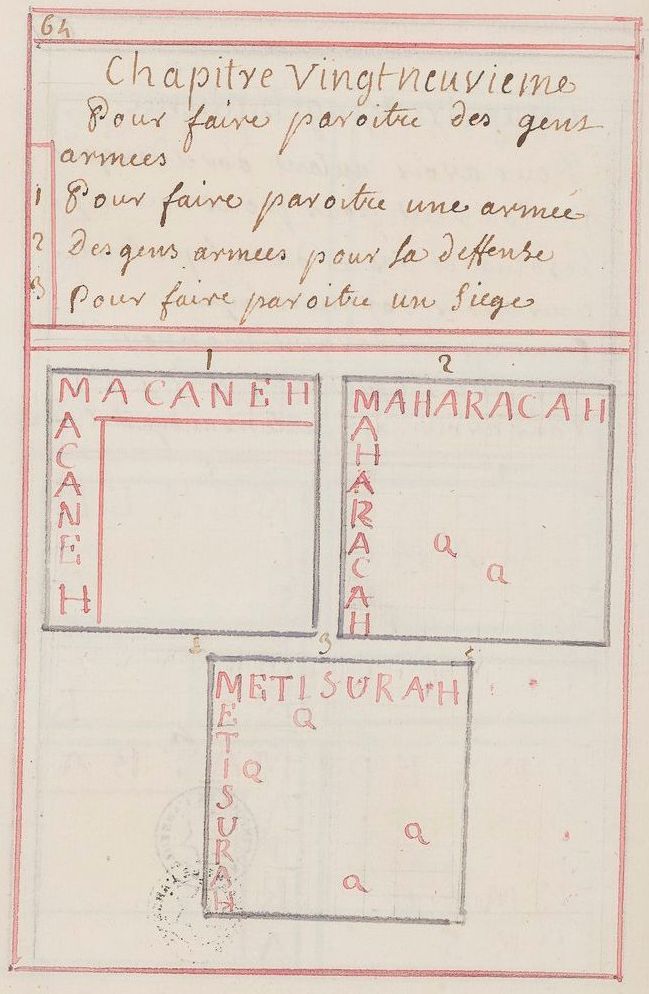 64
Chapitre Vingtneuvieme
Pour faire paroitre des gens
armees
1 Pour faire paroitre une armée
2 des gens armees pour sa deffense
3 Pour faire paroitre un Siege
1 2
MACANEH
A
C
A
N
E
H
MAHARACAH
A
H
A
R
A
C
A
H
a
a
3
METISURAH
E
T
I
S
U
R
A
H
Q
Q
a
a